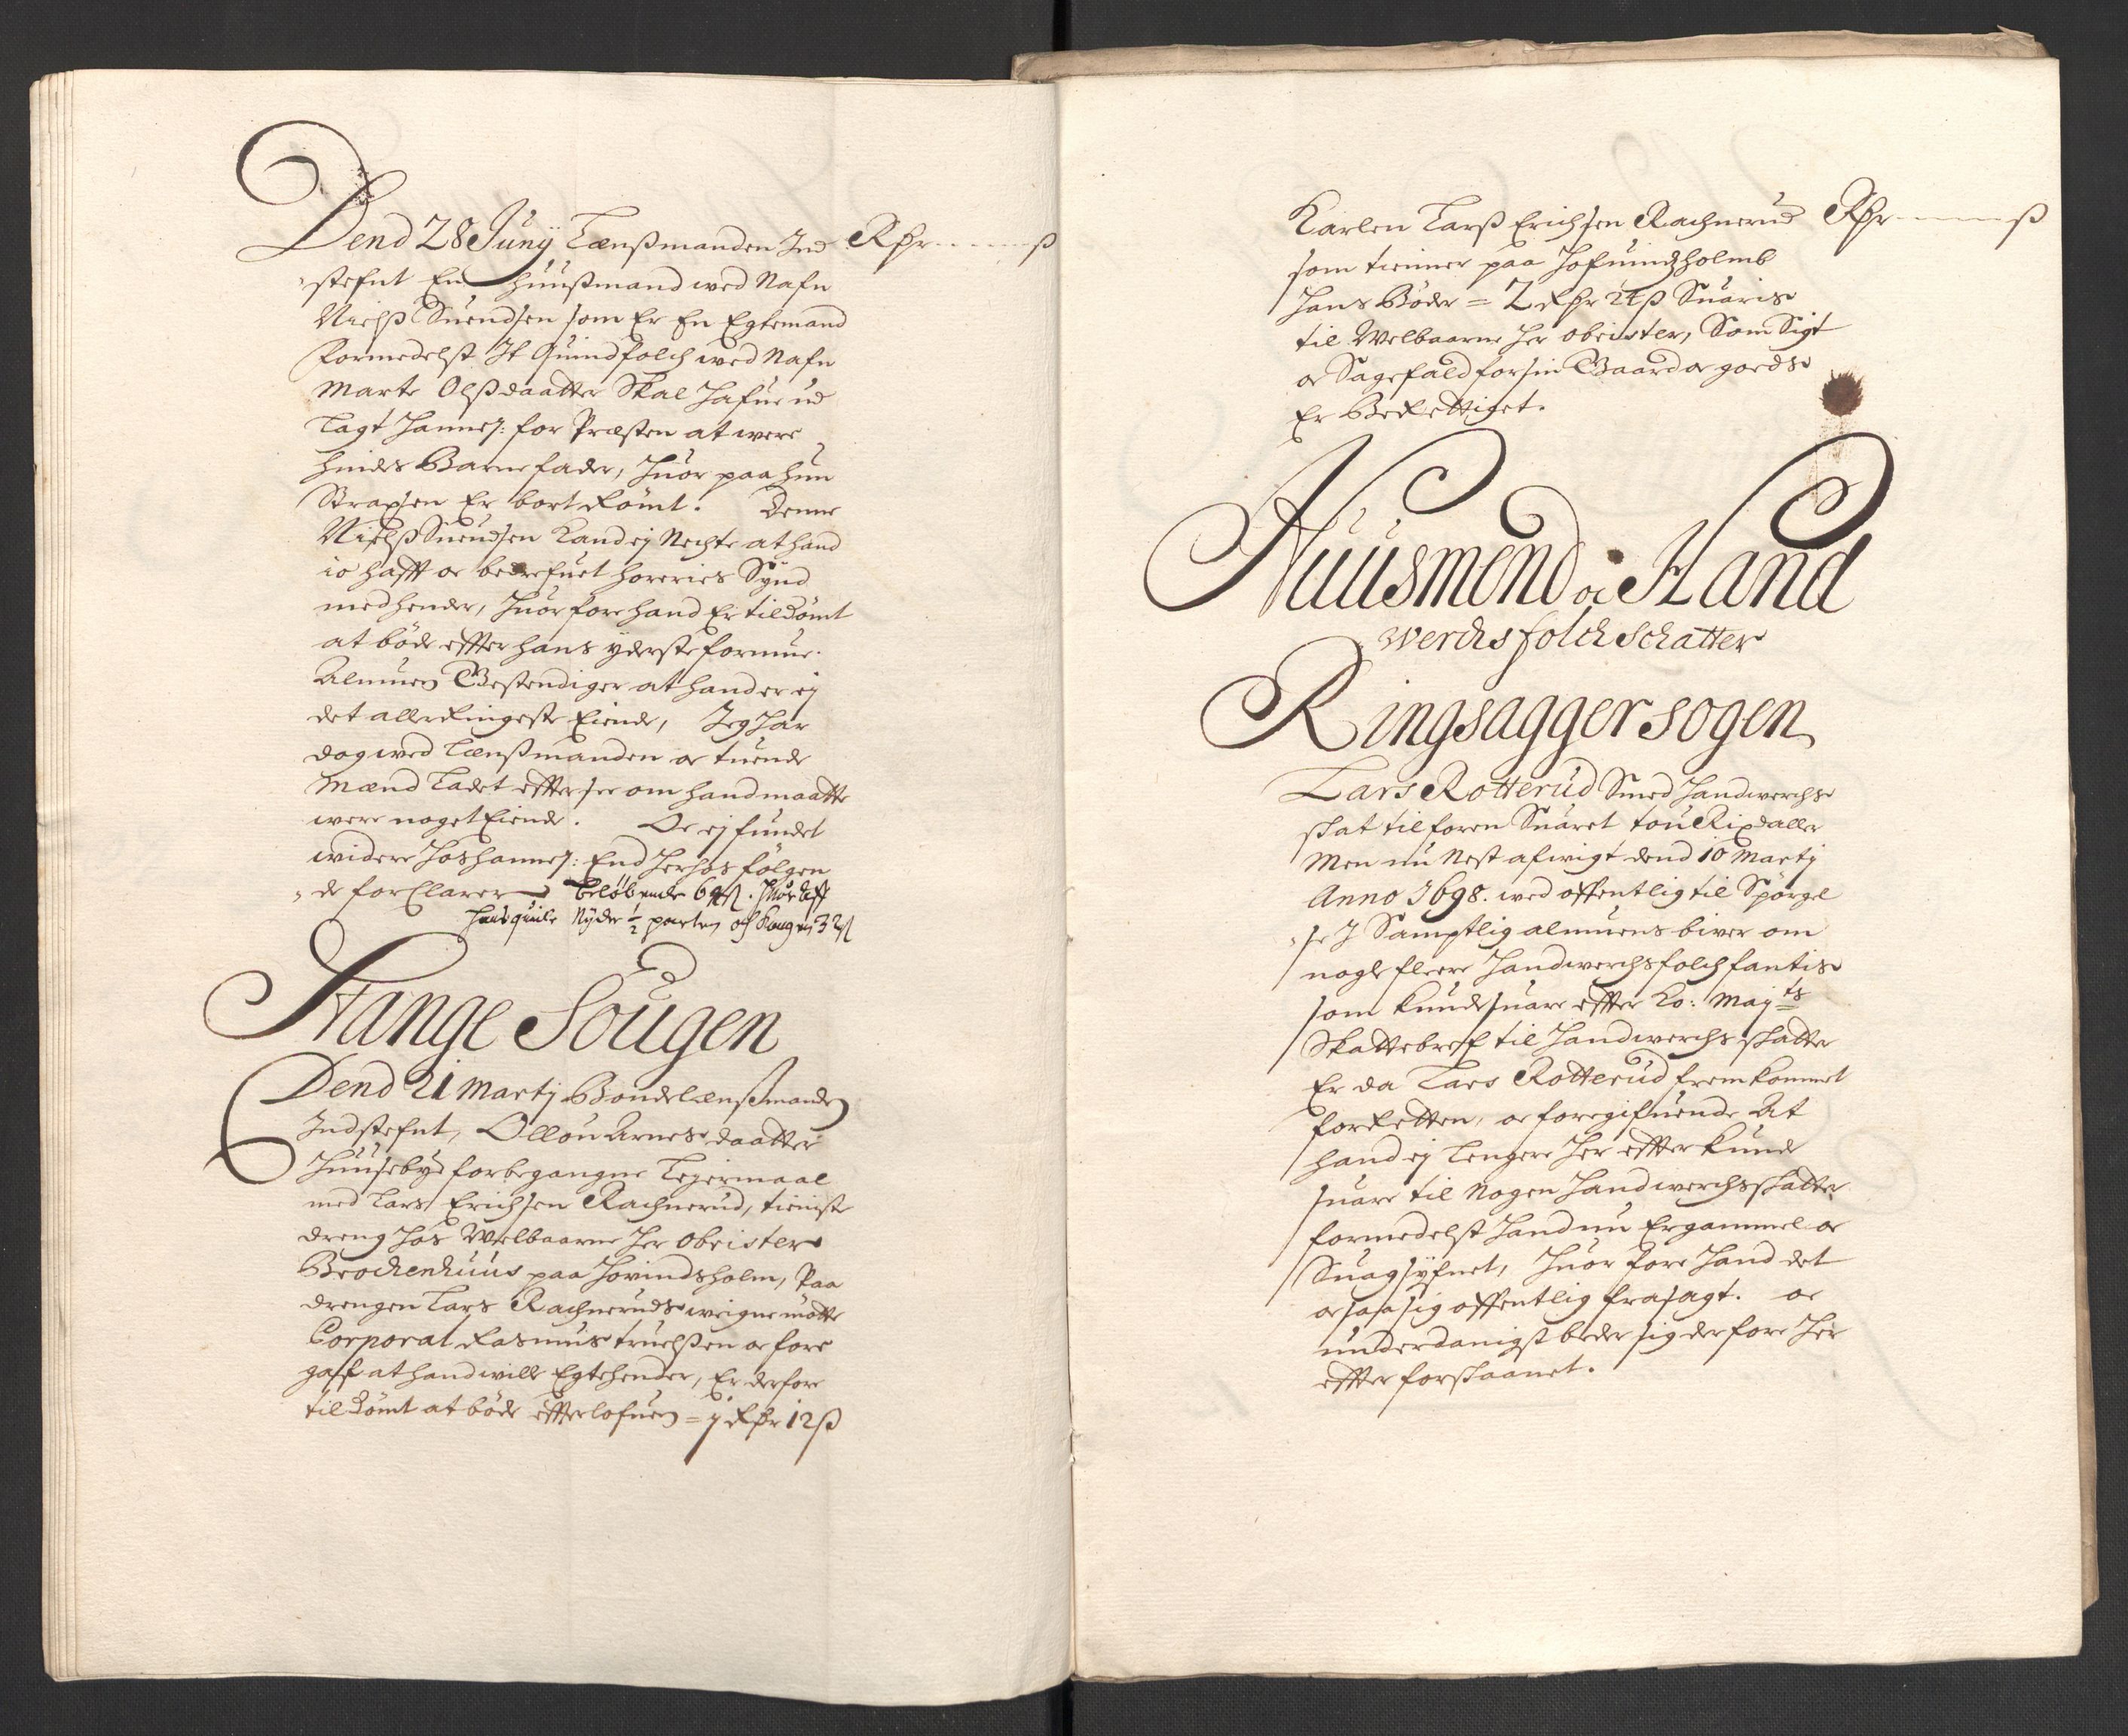 Dend 28 Junÿ Lænßmanden Ind Rdr ß
stefnt En Huußmand wed Nafn
Nielß Suendsen som Er En Egtemand
formedelst It Quindfolch wed Nafn
Marte Olßdaatter Skal Hafue ud
Lagt Hannej: for Præsten at were
hindes Barnefader, huor paa hun
Straxsen Er bort Römt. Denne
Nielß Suendsen Kand ej Negte at hand
io hafft oc bedrefuet Horeries Synd
med hender, huor fore hand Er tildömt
at böde effter hans yderste formue.
Almuen Bestendiger at hand er ej
det allerRingeste Eiende, Jeg har
dog wed Lænßmanden oc tuende
Mænd Ladet effter see om hand maatte
were noget Eiende. Oc ej fundet
widere hos hannej: End herhos fölgen
de forClarer Belöbende 64 ß. huor aff
 Nyder 1/2 parten och Kongen 32 ß
Hange Sougen
Dend 21 Martj Bondelænßmanden
Indstefnt, Ollou Arnesdaatter
Huusebye for begangne Leyermaal
med Lars Erichsen Rachnerud, tieniste
dreng hos Welbaarne Her Obrister
Brockenhuus paa Hovindsholm, Paa
drengen Lars Rachneruds weigne mötte
Corporal Rasmus truelßen oc fore
gaff at hand wille Egte hender, Er derfore
tildömt at böde effter lofuen = j Rdr 12 ß
Karlen Larß Erichsen Rachnerud Rdr ß
som tienner paa Hofuindzholmb
Hans Böder = 2 Rdr 24 ß Suaris
til Welbaarne Her Obrister, Som Sigt
oc Sagefald for sin Gaard oc goeds
Er BeRettiget.
Huusmend oc Hand
werchsfolch Schatter
Ringsagger sogen
Lars Rotterud Smed Handwerchs
skat tilforen Suaret tou Rixdaller
Men nu Nest afwigt dend 10 Martj
Anno 1698. wed offentlig til Spörgel
se J Samptlig almuens biver om
nogle fleere Handwerchsfolch fantis
som kunde suare effter Ko: Mayts
Skattebref til Handwerchs skatte
Er da Lars Rotterud fremkommet
for Retten, oc foregifuende At
hand ej Lengere Her effter kunde
suare til Nogen Handwerchsskatter
formedelst Hand nu Er gammel oc
Suagsÿfnet, Huor fore Hand det
oc saa sig offentlig frasagt. oc
underdanigst beder sig derfore Her
effter forskaanet.